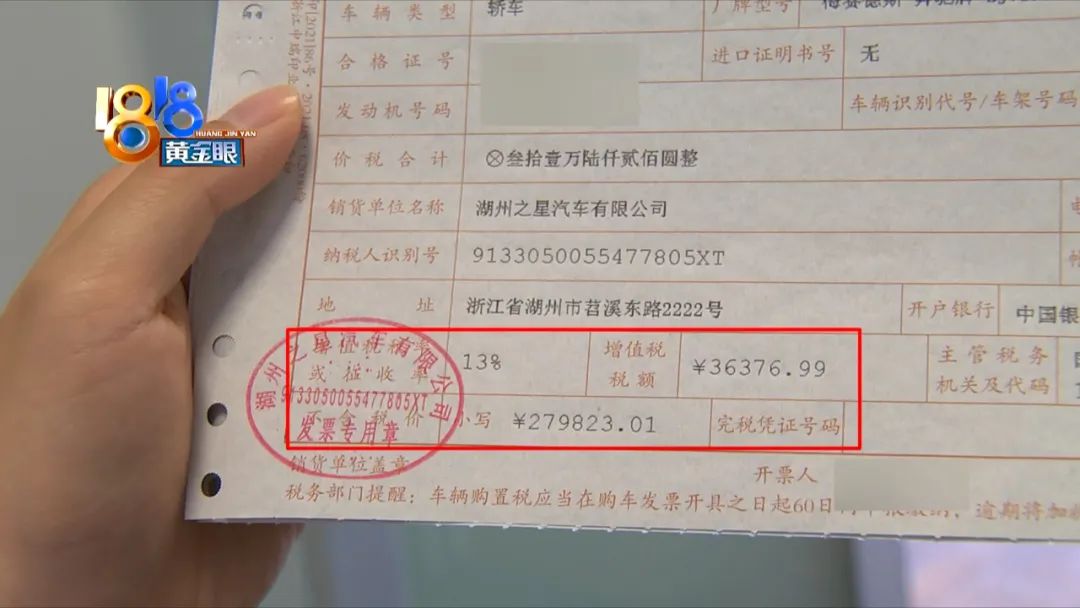 1818
HUANG JIN YAN
黄金眼
车辆类型 轿车 厂牌型号
合格证号 进口证明书号 无
发动机号码 车辆识别代号/车架号码
价税合计 ⊗叁拾壹万陆仟贰佰圆整
销货单位名称 湖州之星汽车有限公司
纳税人识别号 9133050055477805XT
地址 浙江省湖州市苕溪东路2222号 开户银行 中国银
增值税税率 13% 增值税 ¥36376.99 主管税务
或征收率 税额 机关及代码
不含税价 小写 ¥279823.01 完税凭证号码
湖州之星汽车有限公司
9133050055477805XT
发票专用章
销货单位盖章 开票人
税务部门提醒：车辆购置税应当在购车发票开具之日起60日 逾期将加